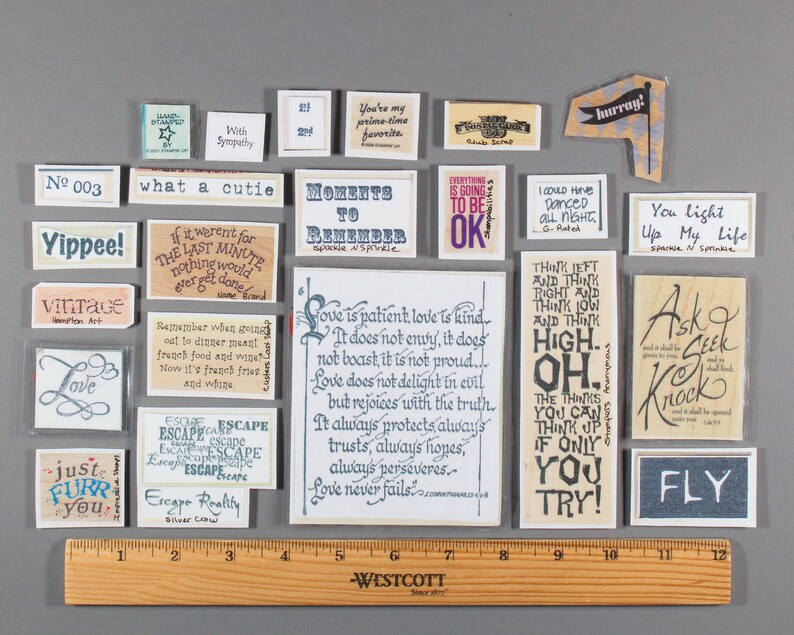 HAND-
STAMPED
BY
With
Sympathy
1st
2nd
You're my
prime-time
favorite.
POSTAL CODE
Club Scrap
hurray!
No 003
what a cutie
MOMENTS
TO
REMEMBER
Sparkle N Sprinkle
EVERYTHING
IS GOING
TO BE
OK
Stampabilities
I COULD HAVE
DANCED
ALL NIGHT.
G-Rated
You light
Up My Life
Sparkle N Sprinkle
Yippee!
If it weren't for
THE LAST MINUTE,
nothing would
ever get done!
Name Brand
vintage
Hampton Art
Remember when going
out to dinner meant
french food and wine?
Now it's french fries
and whine.
Custers Last Stamp
Love is patient, love is kind.
It does not envy, it does
not boast, it is not proud...
Love does not delight in evil
but rejoices with the truth.
It always protects, always
trusts, always hopes,
always perseveres.
Love never fails."
I CORINTHIANS 13:4-8
THINK LEFT
AND THINK
RIGHT AND
THINK LOW
AND THINK
HIGH.
OH,
THE THINKS
YOU CAN
THINK UP
IF ONLY
YOU
TRY!
Stampers Anonymous
Ask
and it shall be
given to you;
Seek
and ye
shall find;
Knock
and it shall be opened
unto you.
Luke 11:9
Love
ESCAPE
ESCAPE
ESCAPE escape
ESCAPE
Escape
ESCAPE
Escape Reality
Silver Crow
just
FURR
you
Impressive Stamps
FLY
1 2 3 4 5 6 7 8 9 10 11 12
WESTCOTT
Since 1872